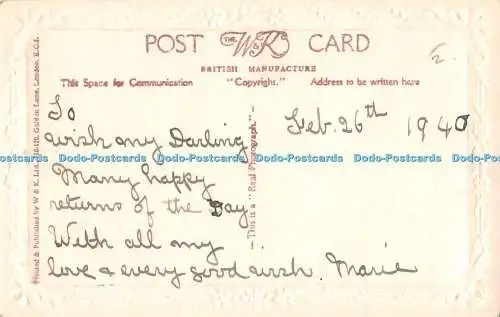 POST THE W&K CARD
BRITISH MANUFACTURE
This Space for Communication "Copyright." Address to be written here
To
wish my Darling
Many happy
returns of the Day
With all my
love & every good wish. Marie
Feb. 26th 1940
2
Printed & Published by W & K. Ltd. Golden Lane, London, E.C.1.
This is a "Real Photograph."
Dodo-Postcards Dodo-Postcards Dodo-Postcards Dodo-Postcards Dodo-Postcards Dodo-Postcards